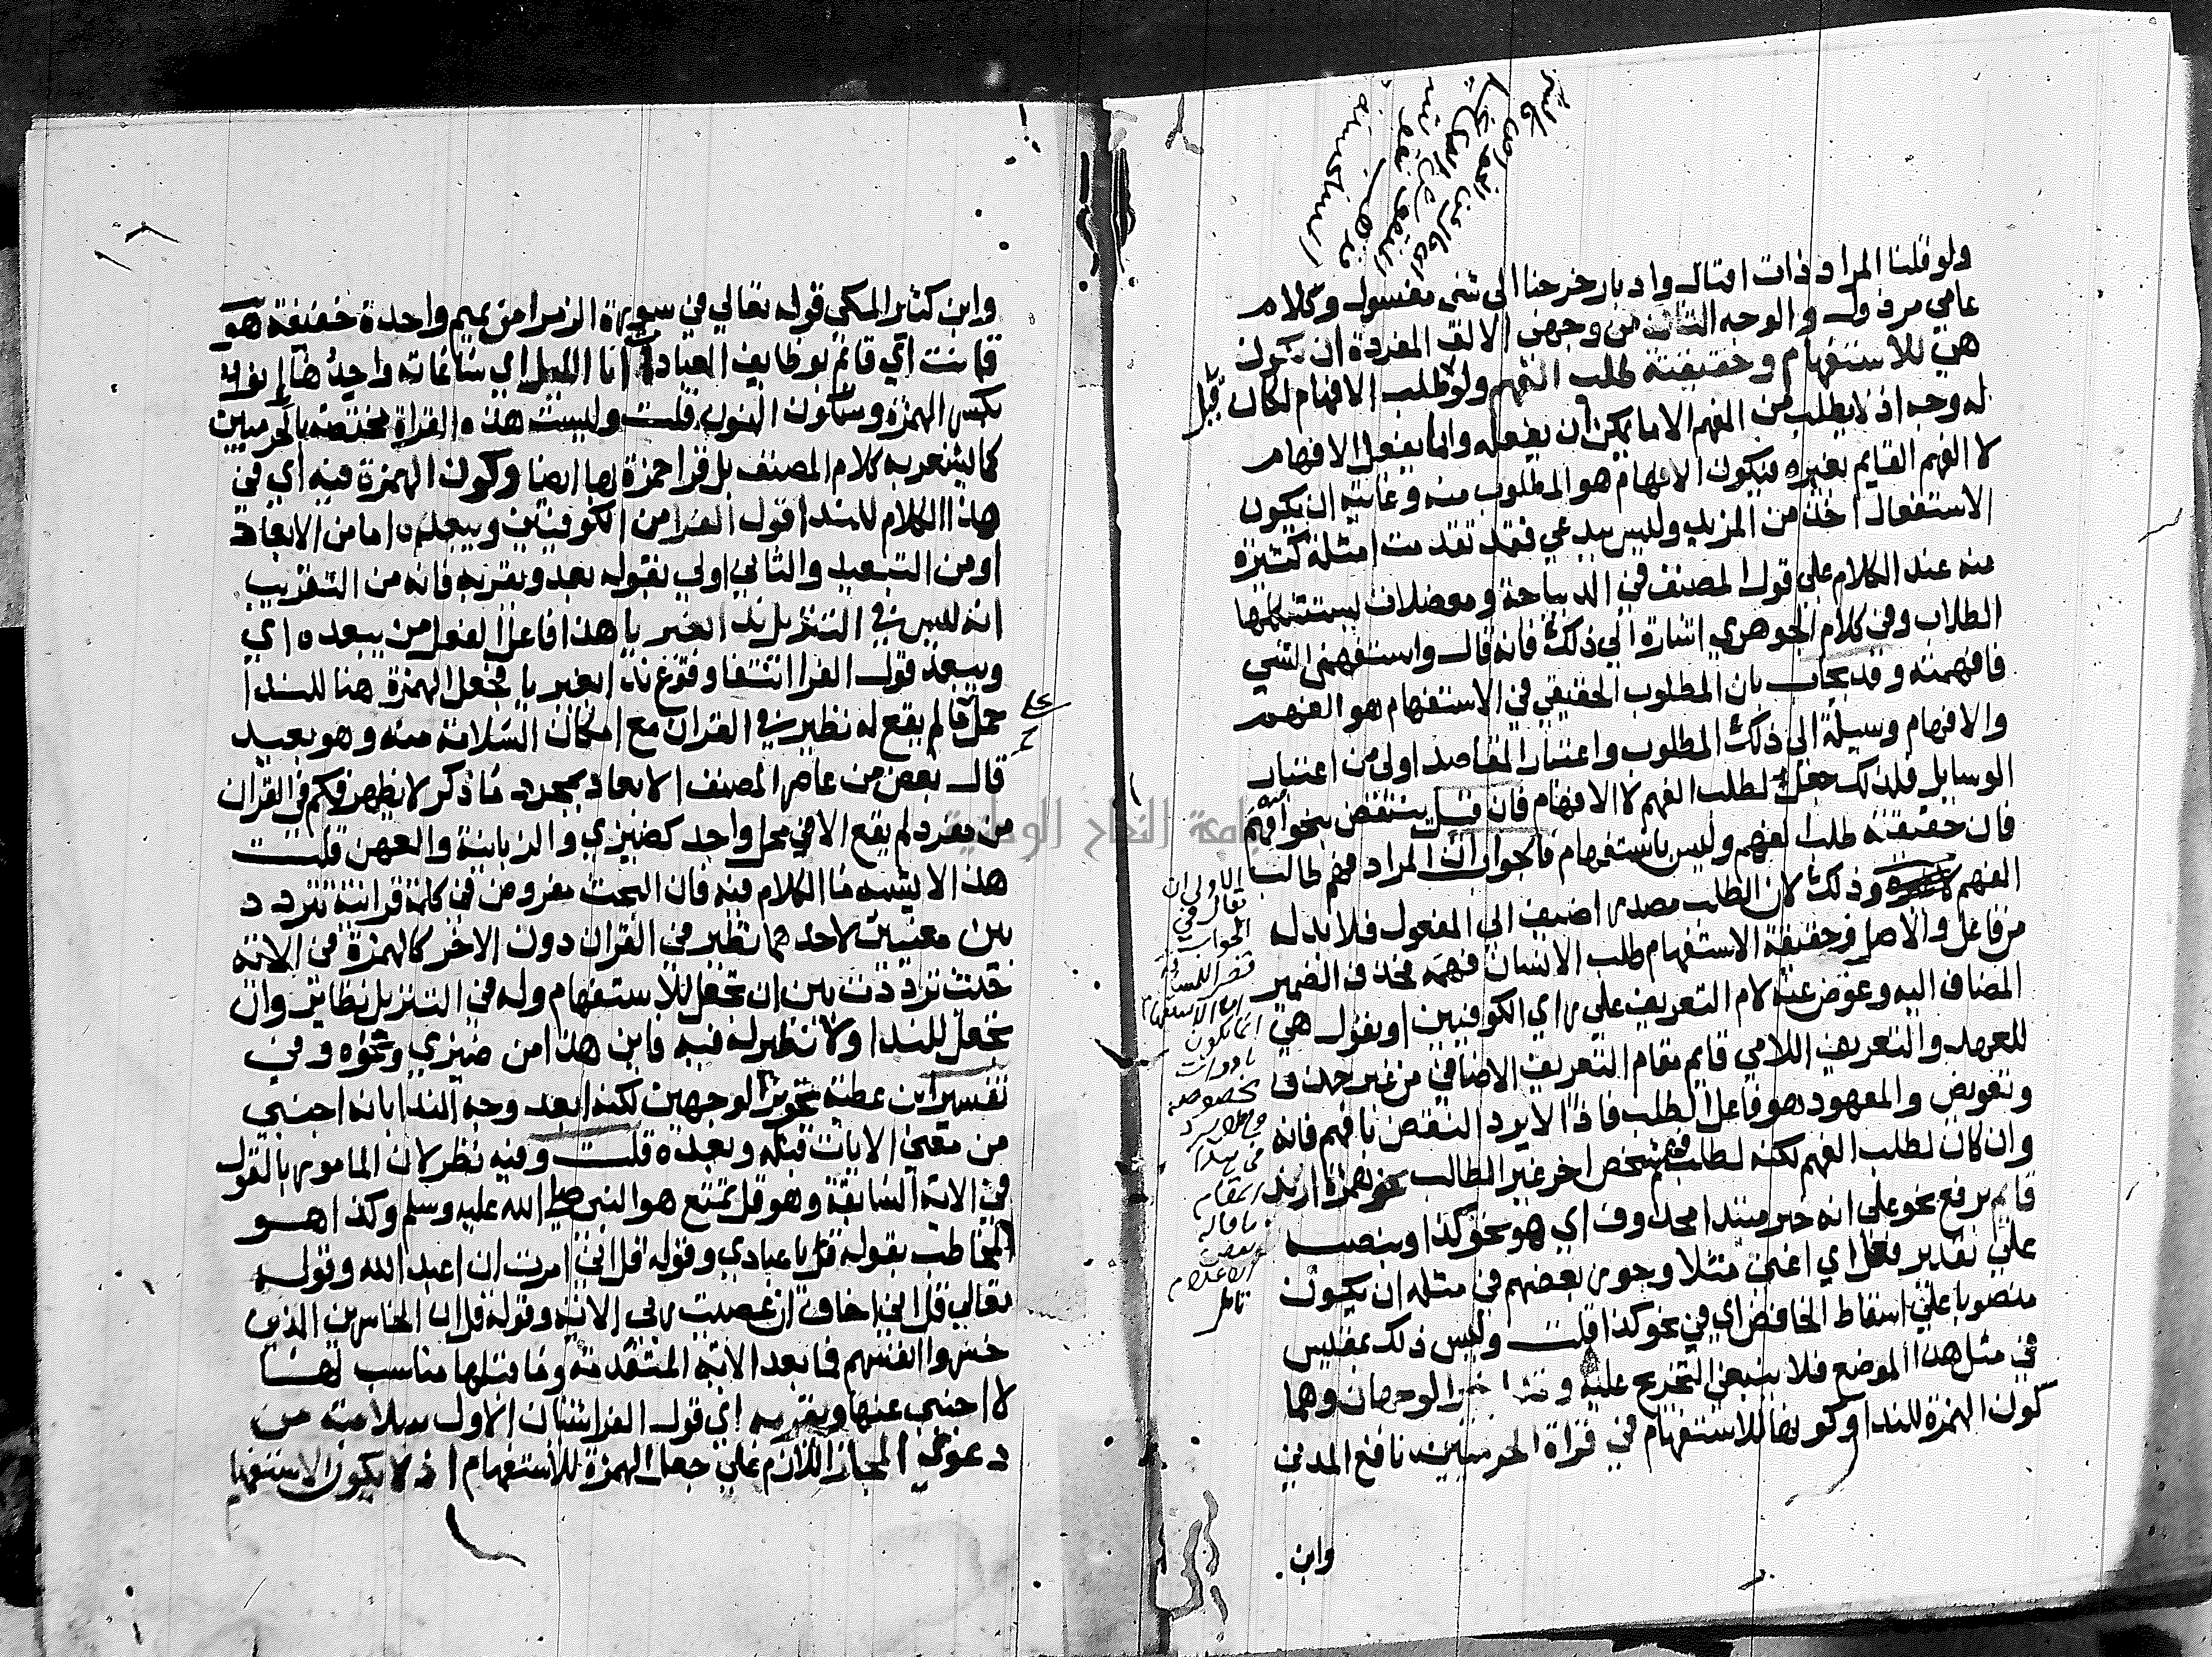 ولو قلنا المراد ذات اقبال وادبار خرجنا الى شئ مغسول وكلام
عامي مرذول والوجه الثاني من وجهي الالف المفردة ان تكون
هي للاستفهام وحقيقته طلب الفهم ولو طلب الافهام لكان قيل
له وجه اذ لا يطلب من المفهم الا ما يمكن ان يفعله وانما يفعل الافهام
لا الفهم القايم بغيره فيكون الافهام هو المطلوب منه وغايته ان يكون
الاستفعال اخذ من المزيد وليس ببدعي فقد تقدمت امثلة كثيرة
منه عند الكلام على قول المصنف في الديباجة ومعضلات يستشكلها
الطلاب وفي كلام الجوهري اشارة الى ذلك فانه قال واستفهمني الشي
فافهمته وقد يجاب بان المطلوب الحقيقي في الاستفهام هو الفهم
والافهام وسيلة الى ذلك المطلوب واعتبار المقاصد اولى من اعتبار
الوسايل فلذلك جعل لطلب الفهم لا الافهام فان قيل ينتقض بنحو افهم
فان حقيقته طلب الفهم وليس باستفهام فالجواب ان المراد فهم طالب
الفهم وذلك لان الطلب مصدر اضيف الى المفعول فلا بد له
من فاعل والاصل في حقيقة الاستفهام طلب الانسان فهمه فحذف الضمير
المضاف اليه وعوض عنه لام التعريف على راي الكوفيين او يقول هي
للعهد والتعريف اللامي قايم مقام التعريف الاضافي من غير حذف
وتعويض والمعهود هو فاعل الطلب فاذا لا يرد النقض بافهم فانه
وان كان لطلب الفهم لكنه لطلب فهم شخص اخر غير الطالب نحو همزة ازيد
قائم برفع نحو على انه خبر مبتدا محذوف اي هو نحو كذا وبنصبه
على تقدير فعل اي اعني مثلا وجوز بعضهم في مثله ان يكون
منصوبا على اسقاط الخافض اي في نحو كذا قلت وليس ذلك بمقيس
في مثل هذا الموضع فلا ينبغي التخريج عليه وقد اجيز الوجهان وهما
كون الهمزة للندا وكونها للاستفهام في قراة الحرميين نافع المدني
وابن
الاولى ان
يقال في
الجواب
الاستفهام
انما يكون
بادوات
مخصوصة
فلا يرد
في هذا
المقام
ما قاله
بعض
الاعلام
تامل
وابن كثير المكي قوله تعالى في سورة الزمر امن بميم واحدة خفيفة هو
قانت اي قائم بوظايف العبادة انا الليل اي ساعاته واحدها انى
بكسر الهمزة وسكون النون قلت وليست هذه القراة مختصة بالحرميين
كما يشعر به كلام المصنف بل قرا حمزة بها ايضا وكون الهمزة فيه اي في
هذا الكلام للندا قول الفرا من الكوفيين ويبعده اما من الابعاد
او من التبعيد والثاني اولى بقوله بعد ويقربه فانه من التقريب
انه ليس في التنزيل ندا بغير يا هذا فاعل الفعل من يبعده اي
ويبعد قول الفرا انتفا وقوع ندا بغير يا فجعل الهمزة هنا للندا
حمل على ما لم يقع له نظير في القران مع امكان السلامة منه وهو بعيد
قال بعض من عاصر المصنف الابعاد بمجرد ما ذكر لا يظهر فكم في القران
من مفرد لم يقع الا في محل واحد كضيزي والزبانية والعهن قلت
هذا لا يشبه ما الكلام فيه فان البحث مفروض في كلمة قرانية تتردد
بين معنيين لاحدهما نظير في القران دون الاخر كالهمزة في الاية
حيث ترددت بين ان تجعل للاستفهام وله في التنزيل نظاير وان
تجعل للندا ولا نظير له فيه فاين هذا من ضيزي ونحوه وفي
تفسير ابن عطية تجويز الوجهين لكنه ابعد وجه الندا بانه اجنبي
من معنى الايات قبله وبعده قلت وفيه نظر لان المامور بالقول
في الاية السابقة وهو قل تمتع هو النبي صلى الله عليه وسلم وكذا هو
المخاطب بقوله قل يا عبادي وقوله قل اني امرت ان اعبد الله وقوله
تعالى قل اني اخاف ان عصيت ربي الاية وقوله قل ان الخاسرين الذين
خسروا انفسهم فما بعد الاية المتقدمة وما قبلها مناسب لها
لا اجنبي عنها ويقربه اي قول الفرا شيئان الاول سلامته من
دعوى المجاز اللازم على جعل الهمزة للاستفهام اذ لا يكون الاستفها
جامعة النجاح الوطنية